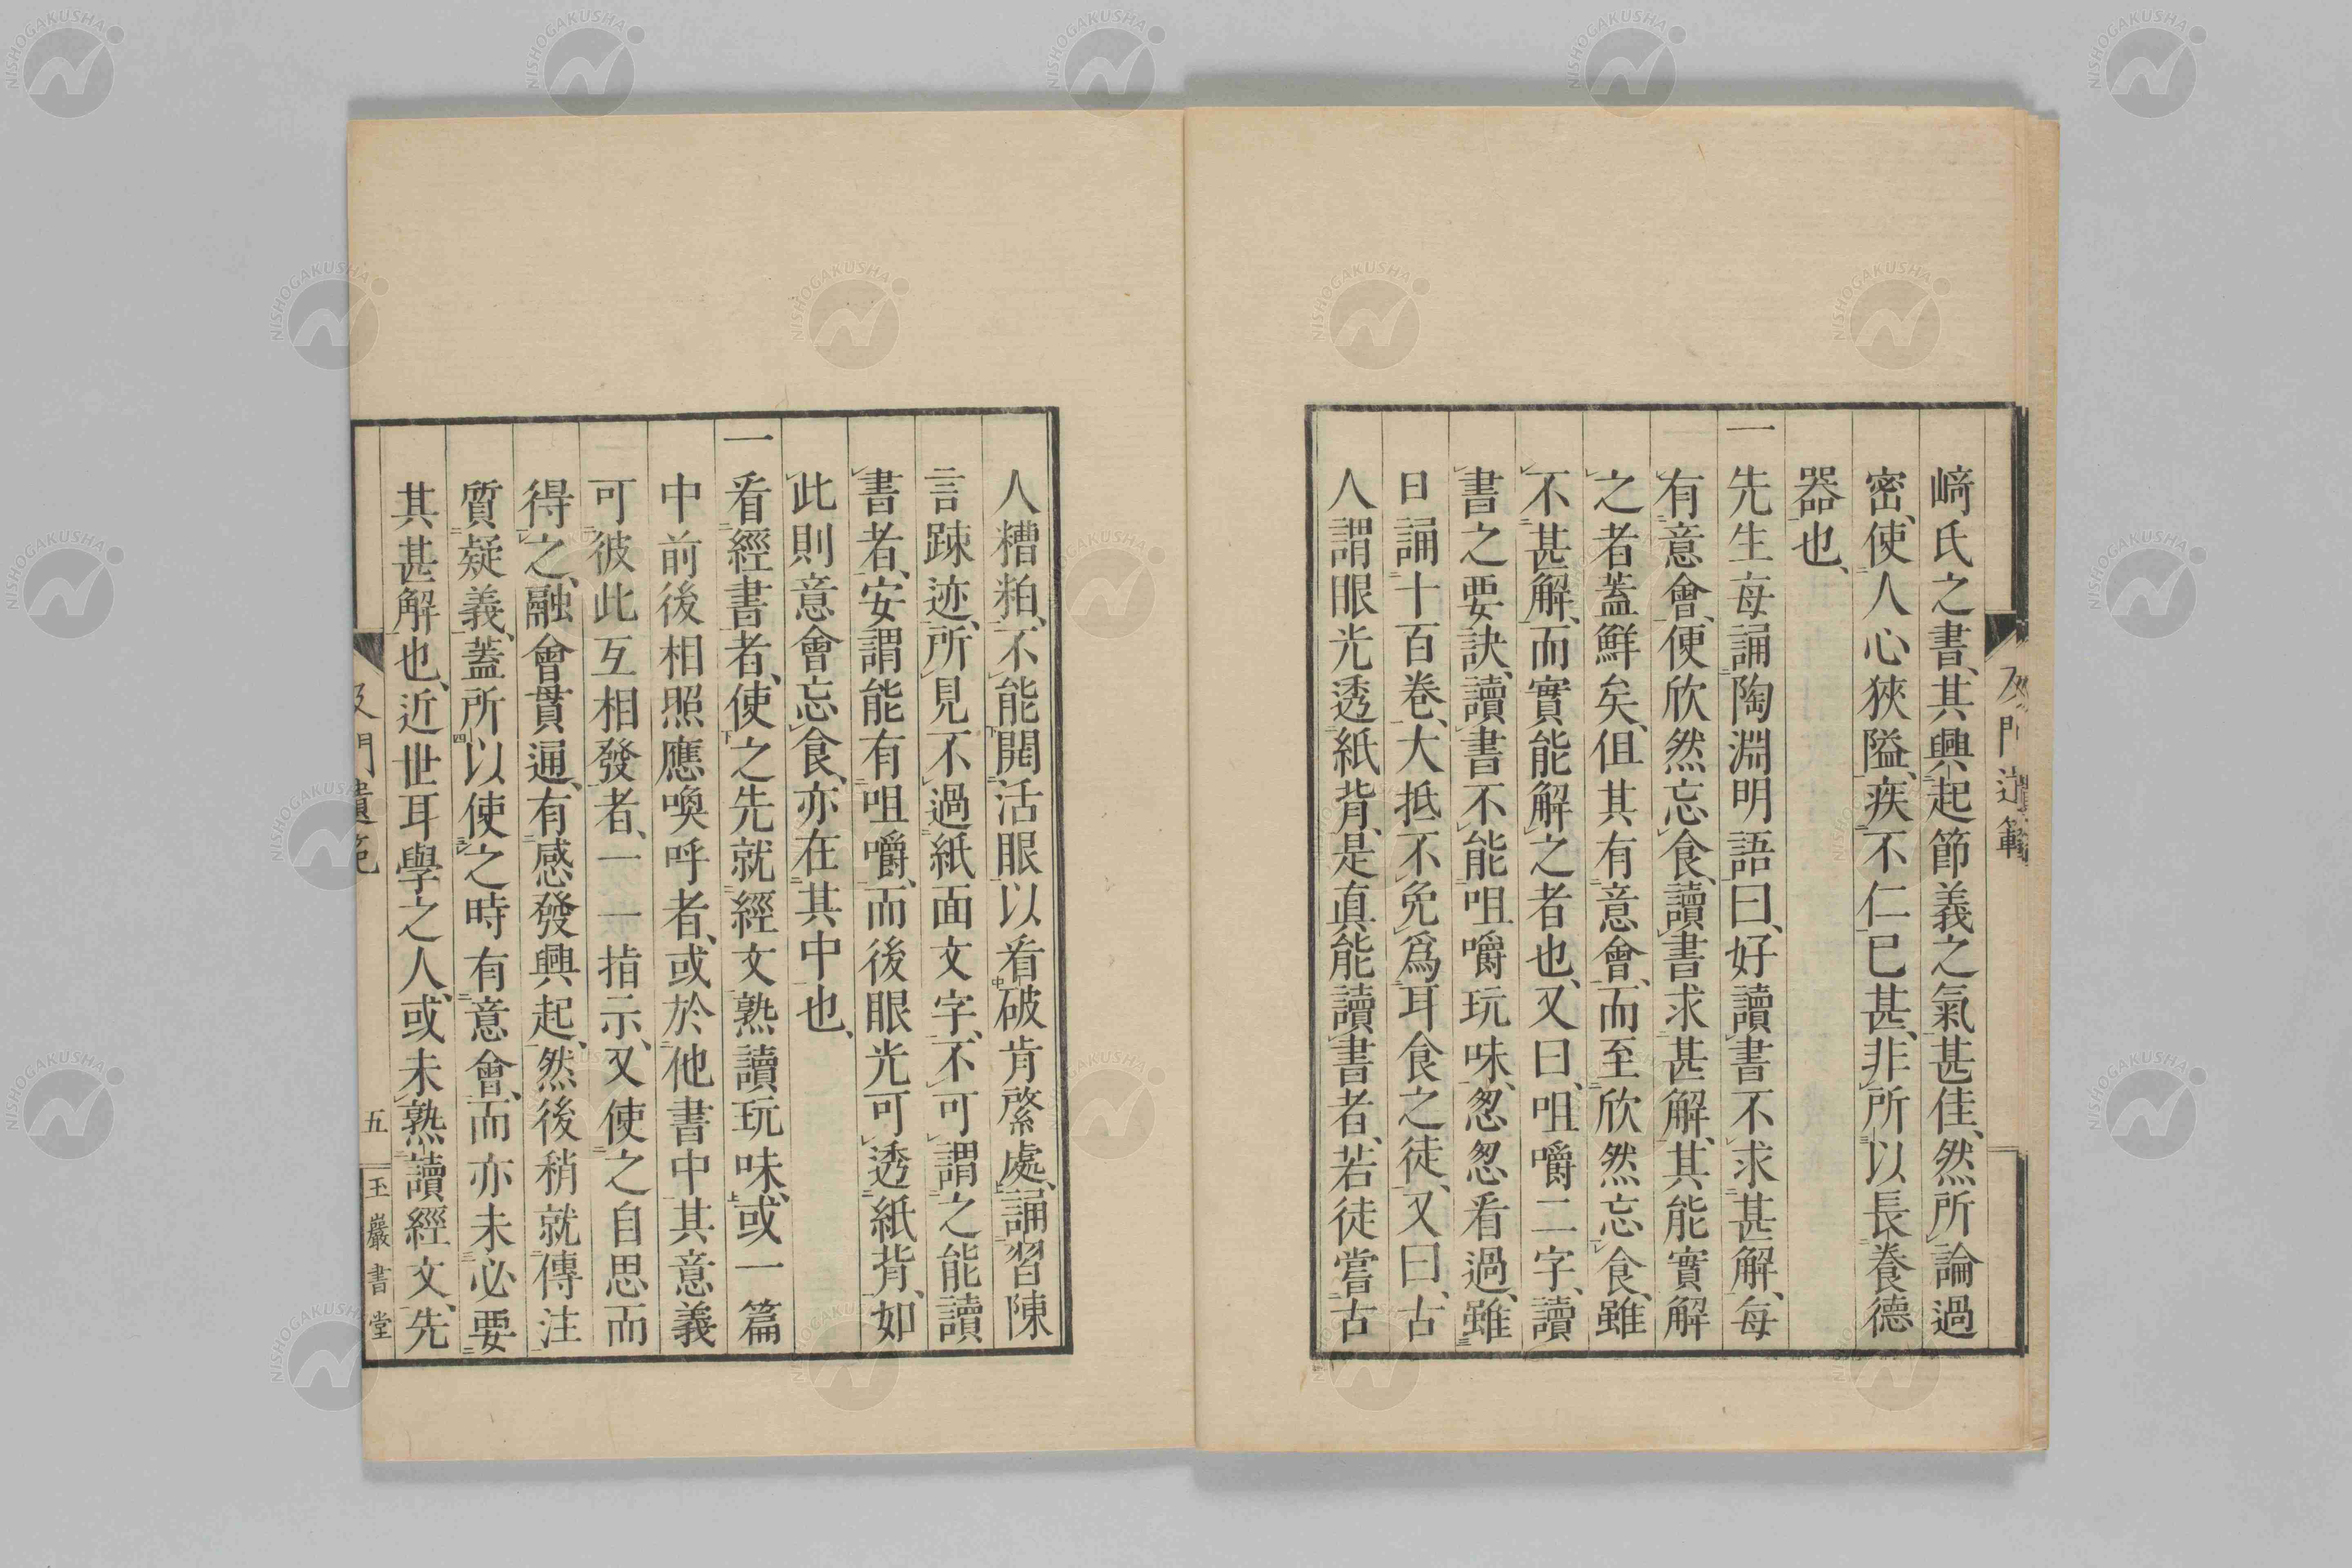 及門遺範
﨑氏之書、其興起節義之氣甚佳、然所論過
密、使人心狹隘、疾不仁已甚、非所以長養德
器也、
一先生每誦陶淵明語曰、好讀書不求甚解、每
有意會、便欣然忘食、讀書求甚解、其能實解
之者蓋鮮矣、但其有意會、而至欣然忘食、雖
不甚解、而實能解之者也、又曰、咀嚼二字、讀
書之要訣、讀書不能咀嚼玩味、怱怱看過、雖
日誦十百卷、大抵不免爲耳食之徒、又曰、古
人謂眼光透紙背、是真能讀書者、若徒嘗古
人糟粕、不能開活眼以看破肯綮處、誦習陳
言踈迹、所見不過紙面文字、不可謂之能讀
書者、安謂能有咀嚼、而後眼光可透紙背、如
此則意會忘食、亦在其中也、
一看經書者、使之先就經文熟讀玩味、或一篇
中前後相照應喚呼者、或於他書中其意義
可彼此互相發者、一一指示、又使之自思而
得之、融會貫通、有感發興起、然後稍就傳注
質疑義、蓋所以使之時有意會、而亦未必要
其甚解也、近世耳學之人、或未熟讀經文、先
及門遺範
五
玉巖書堂
NISHOGAKUSHA